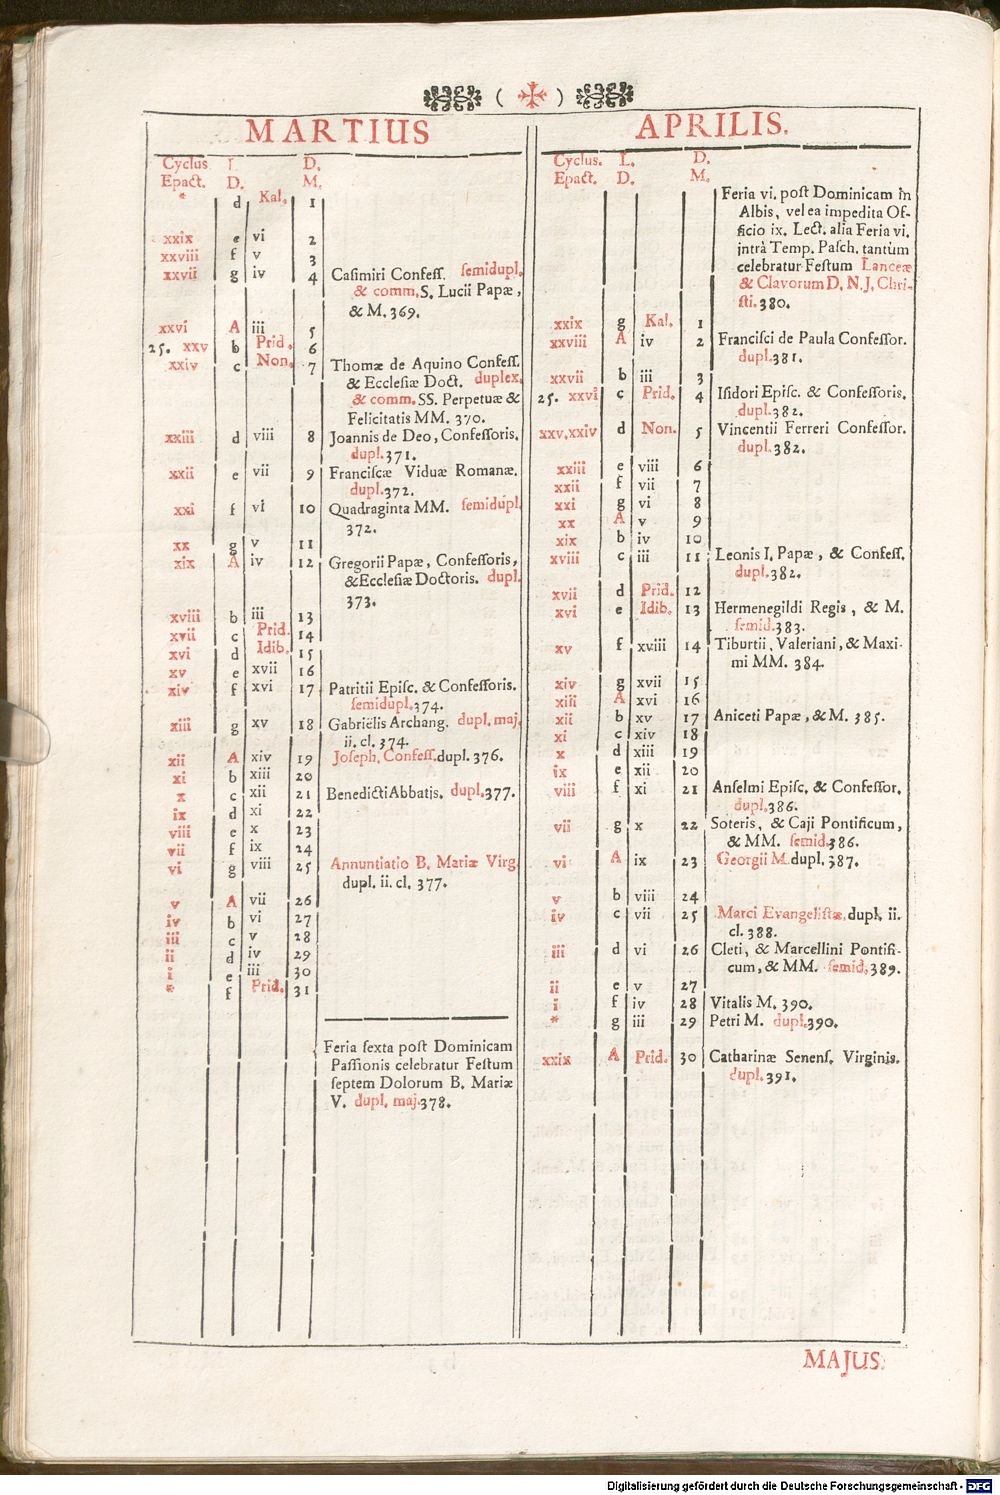 ( ✠ )
MARTIUS
Cyclus L. D.
Epact. D. M.
* d Kal. 1
xxix e vi 2
xxviii f v 3
xxvii g iv 4 Casimiri Confeſſ. ſemidupl.
& comm. S. Lucii Papæ,
& M. 369.
xxvi A iii 5
25. xxv b Prid. 6
xxiv c Non. 7 Thomæ de Aquino Confeſſ.
& Eccleſiæ Doct. duplex.
& comm. SS. Perpetuæ &
Felicitatis MM. 370.
xxiii d viii 8 Joannis de Deo, Confeſſoris.
dupl. 371.
xxii e vii 9 Franciſcæ Viduæ Romanæ.
dupl. 372.
xxi f vi 10 Quadraginta MM. ſemidupl.
372.
xx g v 11
xix A iv 12 Gregorii Papæ, Confeſſoris,
& Eccleſiæ Doctoris. dupl.
373.
xviii b iii 13
xvii c Prid. 14
xvi d Idib. 15
xv e xvii 16
xiv f xvi 17 Patritii Epiſc. & Confeſſoris.
ſemidupl. 374.
xiii g xv 18 Gabriëlis Archang. dupl. maj.
ii. cl. 374.
xii A xiv 19 Joſeph. Confeſſ. dupl. 376.
xi b xiii 20
x c xii 21 Benedicti Abbatis. dupl. 377.
ix d xi 22
viii e x 23
vii f ix 24
vi g viii 25 Annuntiatio B. Mariæ Virg.
dupl. ii. cl. 377.
v A vii 26
iv b vi 27
iii c v 28
ii d iv 29
i e iii 30
* f Prid. 31
Feria ſexta poſt Dominicam
Paſſionis celebratur Feſtum
ſeptem Dolorum B. Mariæ
V. dupl. maj. 378.
APRILIS.
Cyclus. L. D.
Epact. D. M.
Feria vi. poſt Dominicam in
Albis, vel ea impedita Of-
ficio ix. Lect. alia Feria vi.
intrà Temp. Paſch. tantùm
celebratur Feſtum Lanceæ
& Clavorum D. N. J. Chri-
ſti. 380.
xxix g Kal. 1
xxviii A iv 2 Franciſci de Paula Confeſſor.
dupl. 381.
xxvii b iii 3
25. xxvi c Prid. 4 Iſidori Epiſc. & Confeſſoris.
dupl. 382.
xxv. xxiv d Non. 5 Vincentii Ferreri Confeſſor.
dupl. 382.
xxiii e viii 6
xxii f vii 7
xxi g vi 8
xx A v 9
xix b iv 10
xviii c iii 11 Leonis I. Papæ, & Confeſſ.
dupl. 382.
xvii d Prid. 12
xvi e Idib. 13 Hermenegildi Regis, & M.
ſemid. 383.
xv f xviii 14 Tiburtii, Valeriani, & Maxi-
mi MM. 384.
xiv g xvii 15
xiii A xvi 16
xii b xv 17 Aniceti Papæ, & M. 385.
xi c xiv 18
x d xiii 19
ix e xii 20
viii f xi 21 Anſelmi Epiſc. & Confeſſor.
dupl. 386.
vii g x 22 Soteris, & Caji Pontificum,
& MM. ſemid. 386.
vi A ix 23 Georgii M. dupl. 387.
v b viii 24
iv c vii 25 Marci Evangeliſtæ, dupl. ii.
cl. 388.
iii d vi 26 Cleti, & Marcellini Pontifi-
cum, & MM. ſemid. 389.
ii e v 27
i f iv 28 Vitalis M. 390.
* g iii 29 Petri M. dupl. 390.
xxix A Prid. 30 Catharinæ Senenſ. Virginis.
dupl. 391.
MAJUS.
Digitalisierung gefördert durch die Deutsche Forschungsgemeinschaft - DFG